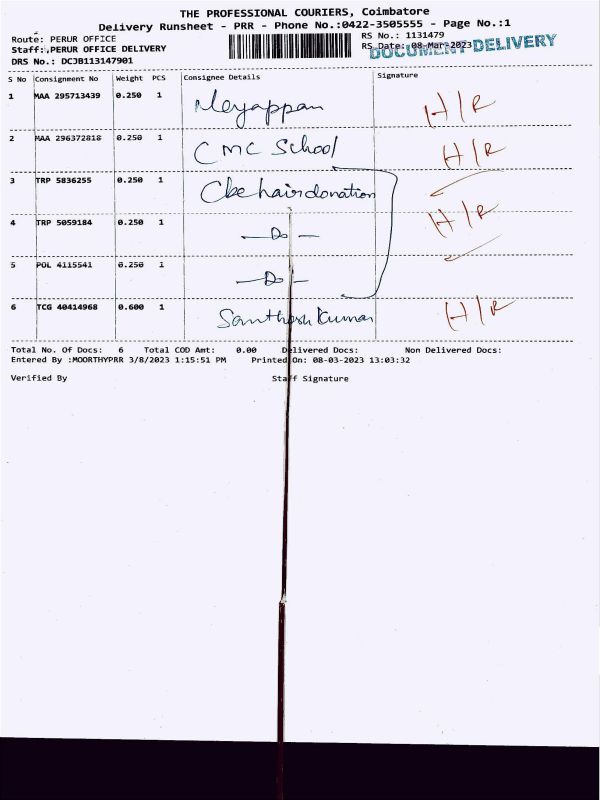 THE PROFESSIONAL COURIERS, Coimbatore
Delivery Runsheet - PRR - Phone No.:0422-3505555 - Page No.:1
Route: PERUR OFFICE
RS No.: 1131479
Staff: PERUR OFFICE DELIVERY
RS Date: 08-Mar-2023
DOCUMENT DELIVERY
DRS No.: DCJB113147901
S No Consignment No Weight PCS Consignee Details Signature
1 MAA 295713439 0.250 1 Meyappan H/R
2 MAA 296372818 0.250 1 CMC School H/R
3 TRP 5836255 0.250 1 Cbe hairdonation
4 TRP 5059184 0.250 1 —Do— H/R
5 POL 4115541 0.250 1 —Do—
6 TCG 40414968 0.600 1 Santhosh Kumar H/R
Total No. Of Docs: 6 Total COD Amt: 0.00 Delivered Docs: Non Delivered Docs:
Entered By :MOORTHYPRR 3/8/2023 1:15:51 PM Printed On: 08-03-2023 13:03:32
Verified By Staff Signature